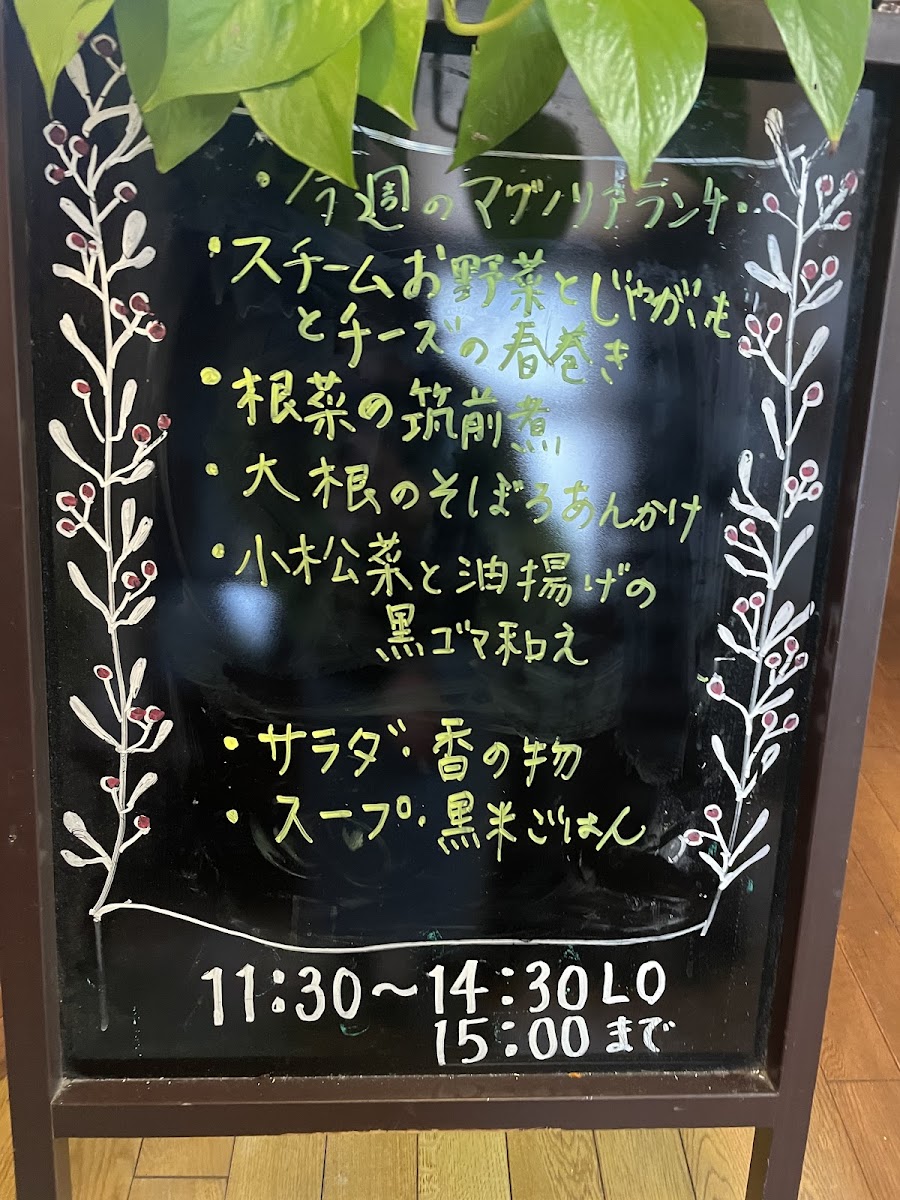 ・今週のマグノリアランチ・・
・スチームお野菜とじゃがいも
とチーズの春巻き
・根菜の筑前煮
・大根のそぼろあんかけ
・小松菜と油揚げの
黒ゴマ和え
・サラダ・香の物
・スープ・黒米ごはん
11:30〜14:30LO
15:00まで